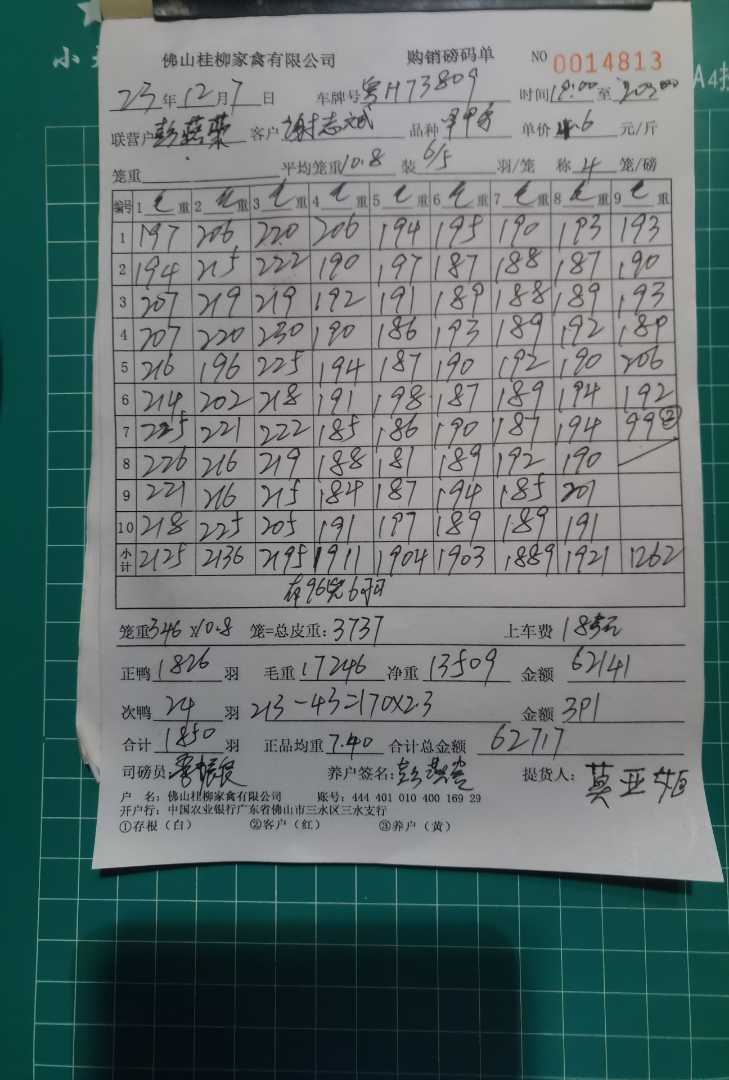 小
佛山桂柳家禽有限公司 购销磅码单 NO 0014813
A4
23年12月7日 车牌号粤H73809 时间19:00至
联营户彭燕 客户谢志斌 品种 单价4.6元/斤
笼重 平均笼重10.8 装6/5羽/笼 称4笼/磅
编号 1 重 2 重 3 重 4 重 5 重 6 重 7 重 8 重 9 重
1 197 206 220 206 194 195 190 193 193
2 194 215 222 190 197 187 188 187 190
3 207 219 219 192 191 189 188 189 193
4 207 220 230 190 186 193 189 192 189
5 216 196 225 194 187 190 192 190 206
6 214 202 218 191 198 187 189 194 192
7 225 221 222 185 186 190 187 194 99②
8 226 216 219 188 181 189 192 190
9 221 216 215 184 187 194 185 201
10 218 225 205 191 197 189 189 191
小计 2125 2136 2195 1911 1904 1903 1889 1921 1262
有96笼6
笼重346×10.8 笼=总皮重:3737 上车费 185元
正鸭1826羽 毛重17246 净重13509 金额62141
次鸭24羽 213-43=170×2.3 金额391
合计1850羽 正品均重7.40 合计总金额62717
司磅员: 养户签名:彭燕 提货人:莫亚
户 名:佛山桂柳家禽有限公司 账号:444 401 010 400 169 29
开户行:中国农业银行广东省佛山市三水区三水支行
①存根(白) ②客户(红) ③养户(黄)